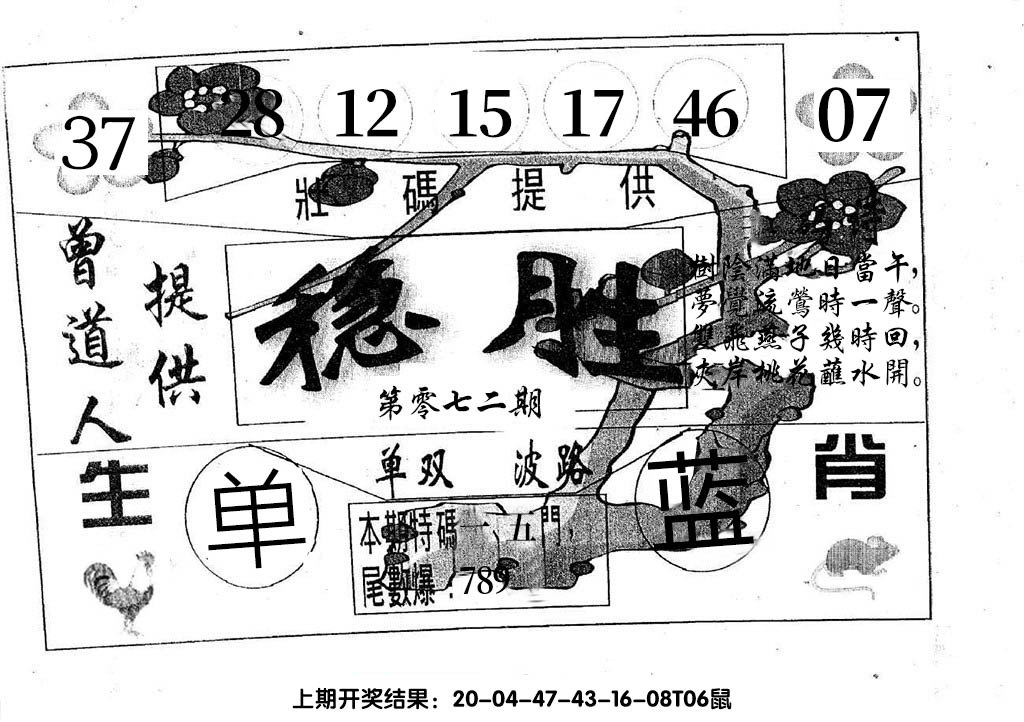 37 28 12 15 17 46 07
壯碼提供
曾道人
提供
稳胜
第零七二期
樹陰滿地日當午，
夢覺流鶯時一聲。
雙飛燕子幾時回，
夾岸桃花蘸水開。
单双 波路
生肖
单
蓝
本期特碼一、五門，
尾數爆：789
上期开奖结果：20-04-47-43-16-08T06鼠